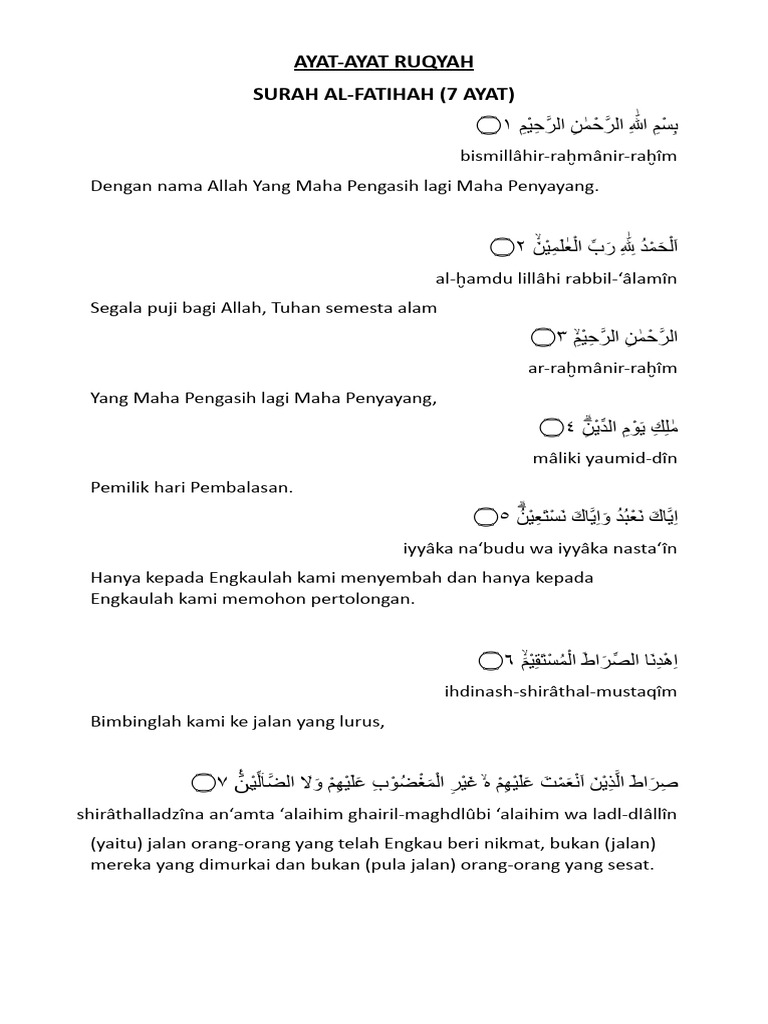 AYAT-AYAT RUQYAH
SURAH AL-FATIHAH (7 AYAT)
بِسْمِ اللّٰهِ الرَّحْمٰنِ الرَّحِيْمِ ۝١
bismillâhir-raḫmânir-raḫîm
Dengan nama Allah Yang Maha Pengasih lagi Maha Penyayang.
اَلْحَمْدُ لِلّٰهِ رَبِّ الْعٰلَمِيْنَۙ ۝٢
al-ḫamdu lillâhi rabbil-‘âlamîn
Segala puji bagi Allah, Tuhan semesta alam
الرَّحْمٰنِ الرَّحِيْمِۙ ۝٣
ar-raḫmânir-raḫîm
Yang Maha Pengasih lagi Maha Penyayang,
مٰلِكِ يَوْمِ الدِّيْنِۗ ۝٤
mâliki yaumid-dîn
Pemilik hari Pembalasan.
اِيَّاكَ نَعْبُدُ وَاِيَّاكَ نَسْتَعِيْنُۗ ۝٥
iyyâka na‘budu wa iyyâka nasta‘în
Hanya kepada Engkaulah kami menyembah dan hanya kepada
Engkaulah kami memohon pertolongan.
اِهْدِنَا الصِّرَاطَ الْمُسْتَقِيْمَۙ ۝٦
ihdinash-shirâthal-mustaqîm
Bimbinglah kami ke jalan yang lurus,
صِرَاطَ الَّذِيْنَ اَنْعَمْتَ عَلَيْهِمْ ەۙ غَيْرِ الْمَغْضُوْبِ عَلَيْهِمْ وَلَا الضَّاۤلِّيْنَࣖ ۝٧
shirâthalladzîna an‘amta ‘alaihim ghairil-maghdlûbi ‘alaihim wa ladl-dlâllîn
(yaitu) jalan orang-orang yang telah Engkau beri nikmat, bukan (jalan)
mereka yang dimurkai dan bukan (pula jalan) orang-orang yang sesat.